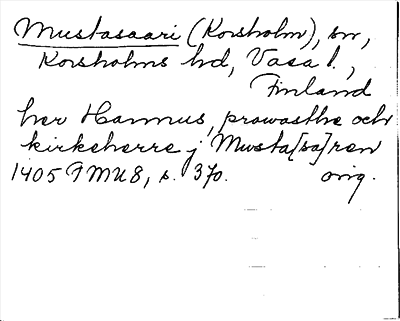 Mustasaari (Korsholm), sn,
Korsholms hd, Vasa l.,
Finland
her Hannus, prowasthe och
kirkeherre j Musta[sa]ren
1405 FMU 8, s. 370. orig.